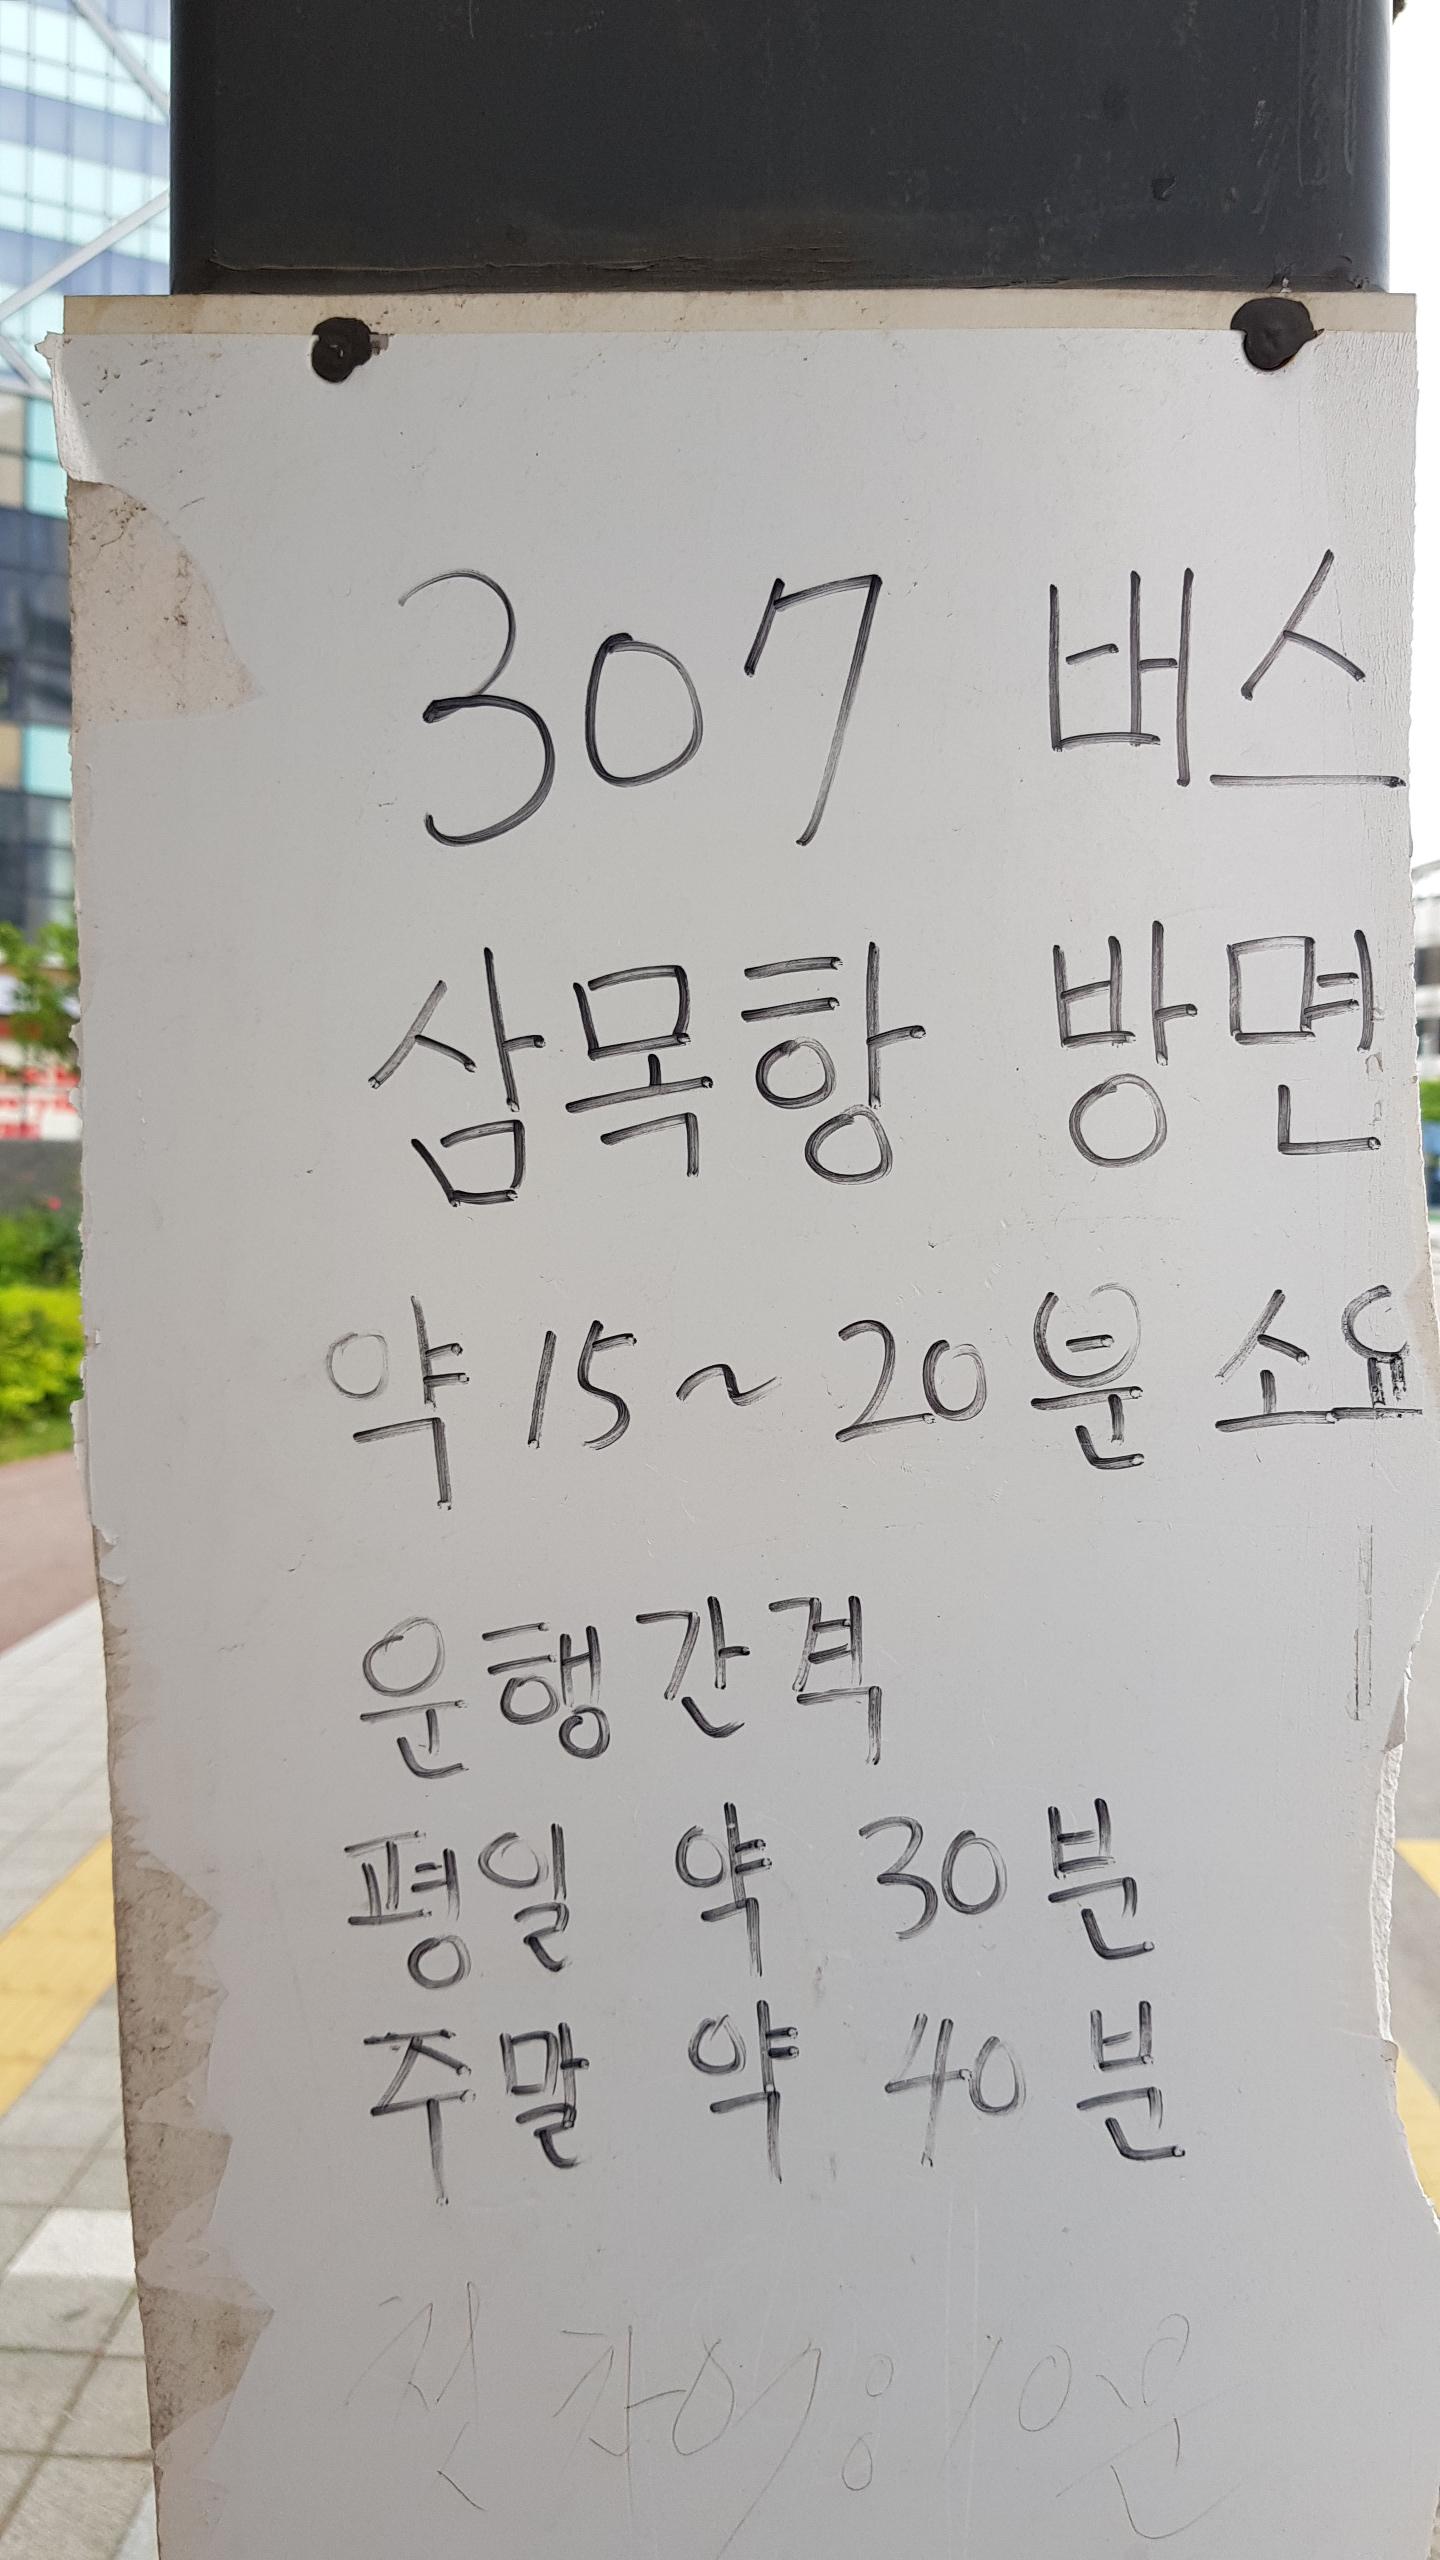 307 버스
삼목항 방면
약 15~20분 소요
운행간격
평일 약 30분
주말 약 40분
첫차 07:10분